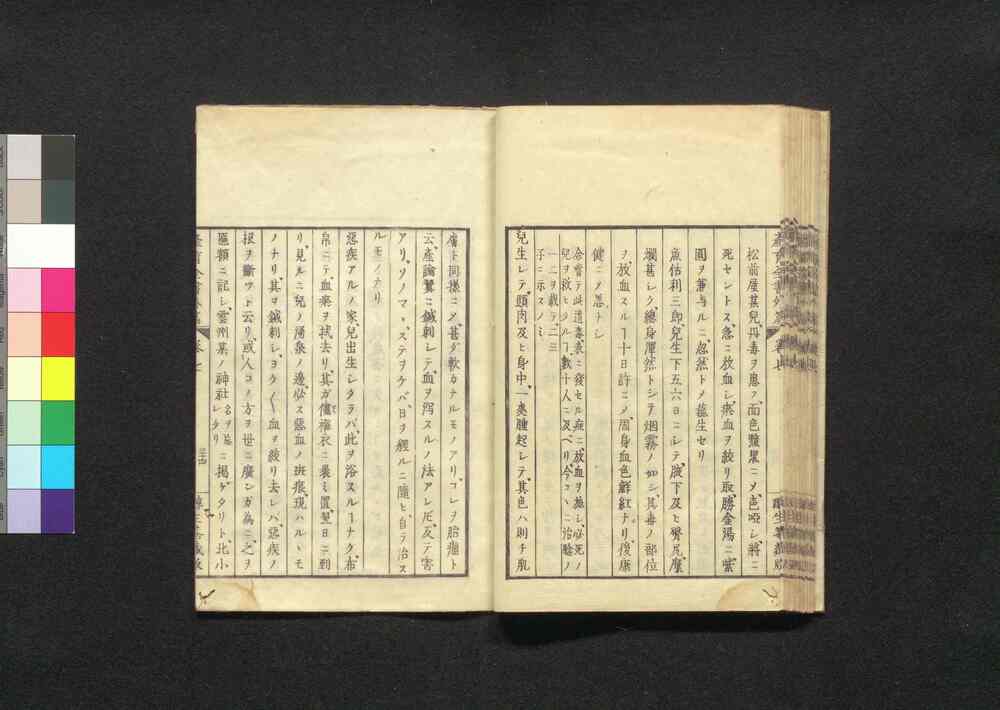 松前屋某兒、丹毒ヲ患フ、面色黯黑ニメ、色啞レ、將ニ
死セントス、急ニ放血シ、瘀血ヲ絞リ取、勝金湯ニ紫
圓ヲ兼与ルニ、忽然トメ蘓生セリ
魚估利三郎兒生下五六日ニシテ、腋下及ヒ臀尻糜
爛甚レク、總身渾然トシテ烟霧ノ如シ、其毒ノ部位
ヲ放血スルヿ十日許ニメ、周身血色鮮紅ナリ、復康
健ニメ愚トレ
余嘗テ此道毒表ニ發セル症ニ放血ヲ施レ、必死ノ
兒ヲ救ヒタルヿ、數十人ニ及ベリ、今コヽニ治驗ノ
一二ヲ載テ、二三
子ニ示スノミ
兒生レテ、頭肉及ヒ身中、一處腫起レテ、其色ハ則チ肌
膚ト同樣ニメ、甚ダ軟カナルモノアリ、コレヲ胎瘤ト
云、產論翼ニ鍼刺レテ血ヲ瀉スルノ法アレ𪜈、反テ害
アリ、ソノマヽ、ステヲケバ、日ヲ經ルニ隨ヒ、自ラ治ス
ルモノナリ
惡疾アルノ家、兒出生シタラバ、此ヲ浴スルヿナク、布
帛ニテ、血穢ヲ拭去リ、其ガ儘褓衣ニ裹ミ置、翌日ニ到
リ、見ルニ兒ノ湧泉ノ邊、必ス惡血ノ斑痕現ハルヽモ
ノナリ、其ヲ鍼刺レ、ヨク〱血ヲ絞リ去レバ、惡疾ノ
根ヲ斷ツト云リ、或人コノ方ヲ世ニ廣ンガ為ニ、之ヲ
匾額ニ記レ、雲州某ノ神社
名ヲ忘
レタリ
ニ掲ゲタリト、北小